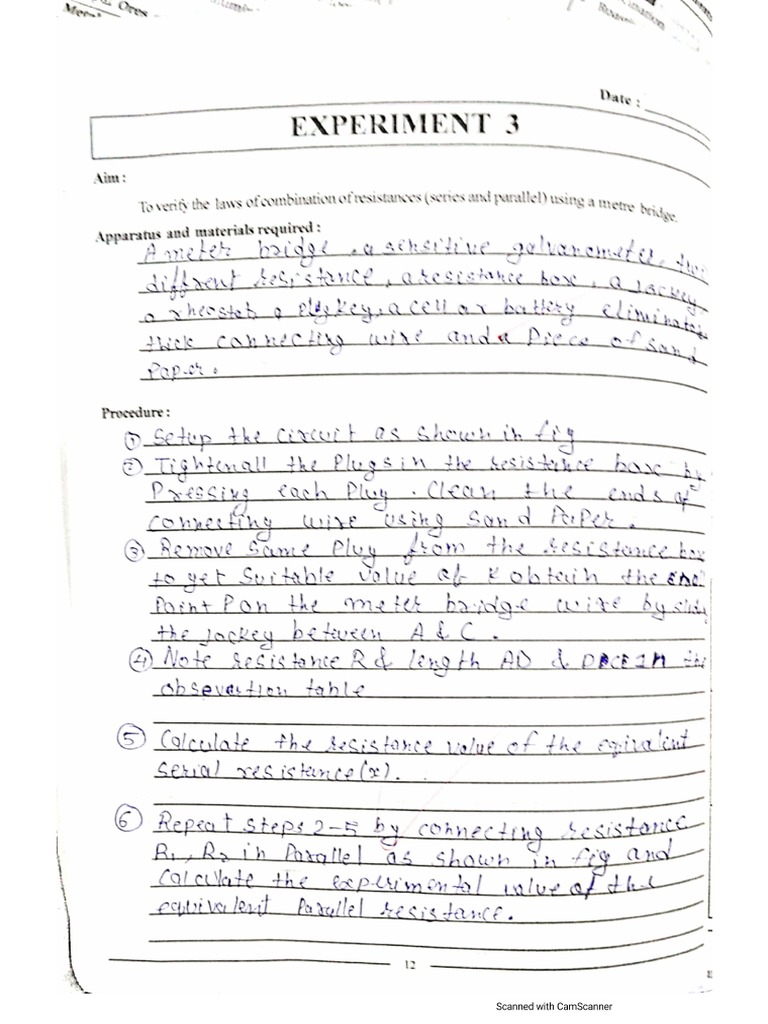 Ores
Date :
EXPERIMENT 3
Aim :
To verify the laws of combination of resistances (series and parallel) using a metre bridge.
Apparatus and materials required :
A meter bridge , a sensitive galvanometer,
diffrent resistance , a resistance box , a Jockey
a rheostat a plug key, a cell or battery eliminator
thick connecting wire and a Piece of sand
Paper.
Procedure :
① Setup the circuit as shown in fig
② Tighten all the Plugs in the resistance box by
Pressing each Plug . Clean the ends of
connecting wire using sand PaPer.
③ Remove same Plug from the resistance box
to get Suitable value of R obtain the
Point D on the meter bridge wire by
the Jockey between A & C .
④ Note resistance R & length AD & in the
observation table
⑤ Calculate the resistance value of the equivalent
serial resistance (x).
⑥ Repeat steps 2-5 by connecting resistance
R1, R2 in Parallel as shown in fig and
Calculate the experimental value of the
equivalent Parallel resistance.
12
Scanned with CamScanner